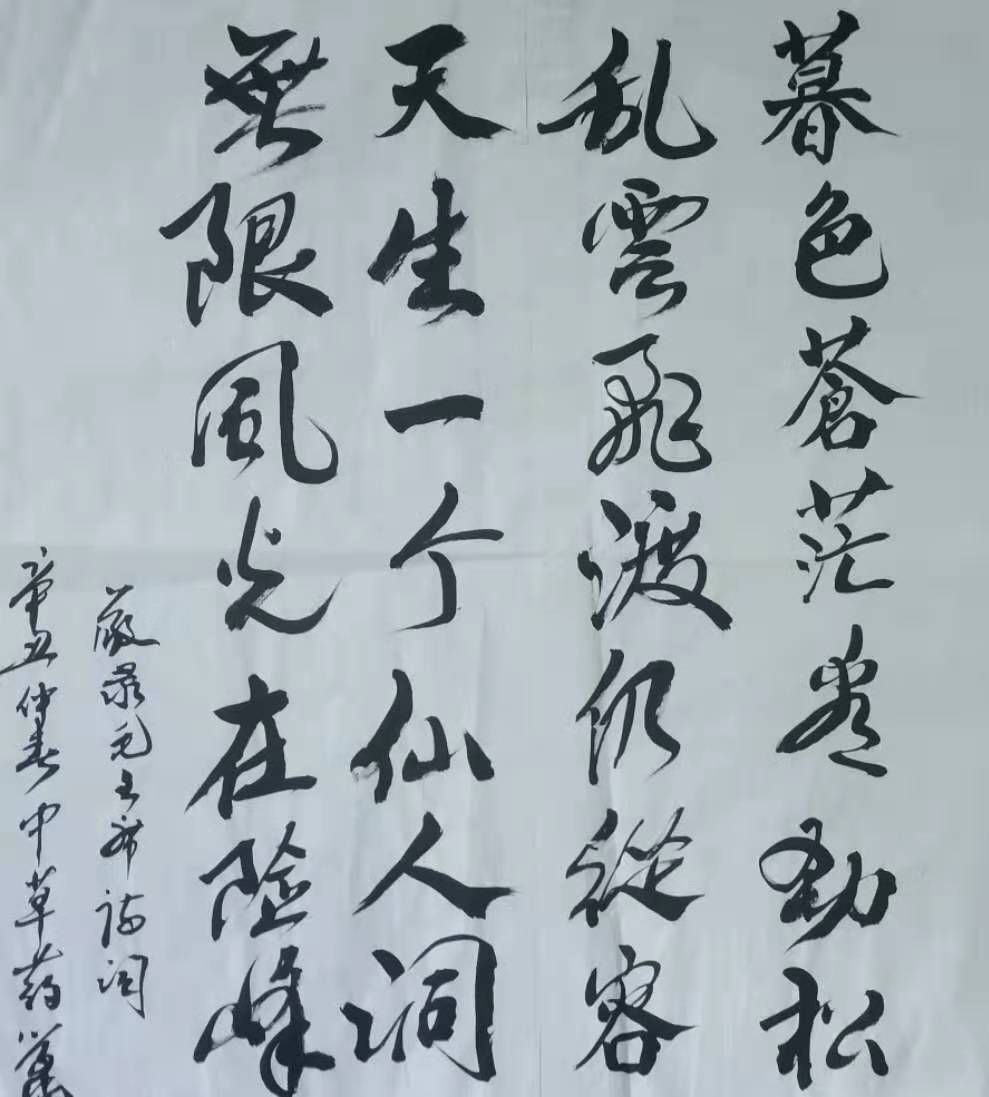 暮色蒼茫看劲松
乱雲飛渡仍從容
天生一个仙人洞
無限風光在险峰
嚴录毛主席诗词
辛丑仲春中草药